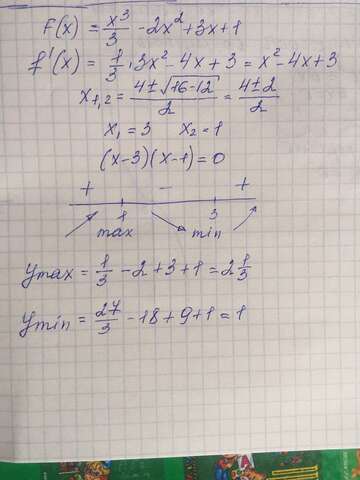 f(x) = x³/3 - 2x² + 3x + 1
f'(x) = 1/3 · 3x² - 4x + 3 = x² - 4x + 3
x₁,₂ = (4 ± √(16-12))/2 = (4 ± 2)/2
x₁ = 3 x₂ = 1
(x-3)(x-1) = 0
+ - +
1 3
max min
ymax = 1/3 - 2 + 3 + 1 = 2 1/3
ymin = 27/3 - 18 + 9 + 1 = 1